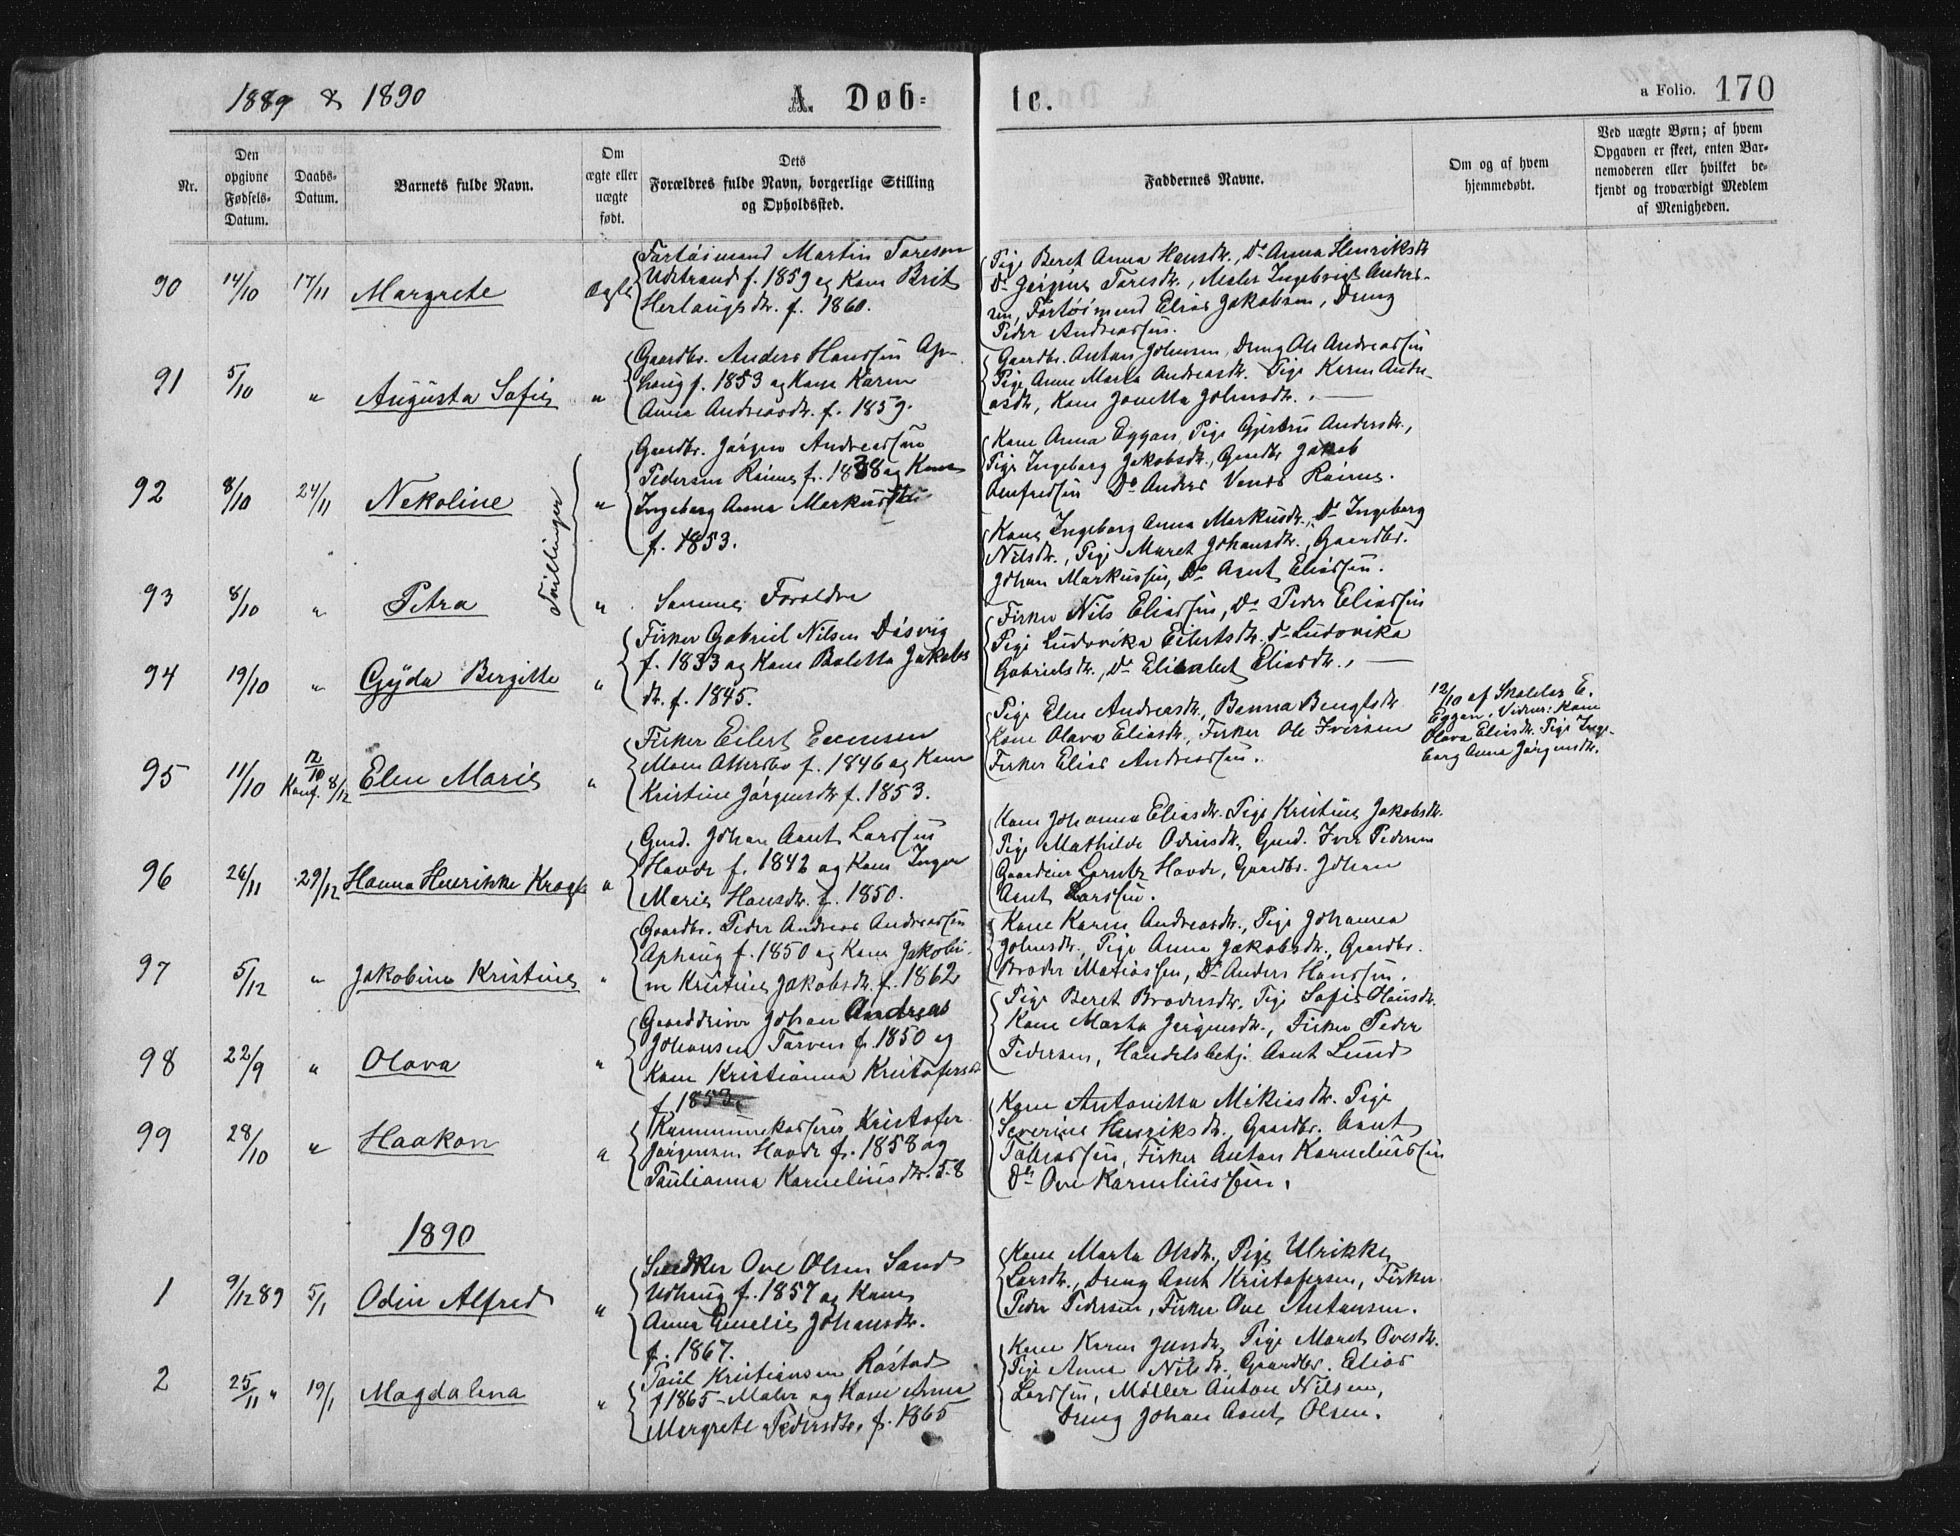 1889 & 1890
A. Døb-
te.
a Folio. 170
Nr.
Den opgivne Fødsels-Datum.
Daabs-Datum.
Barnets fulde Navn.
Om ægte eller uægte født.
Dets Forældres fulde Navn, borgerlige Stilling og Opholdssted.
Faddernes Navne.
Om og af hvem hjemmedøbt.
Ved uægte Børn; af hvem Opgaven er skeet, enten Barnemoderen eller hvilket bekjendt og troværdigt Medlem af Menigheden.
90 14/10 17/11 Margrete Ægte
Fartøimand Martin Taresen
Udstrand f. 1859 og Kone Brit
Herlaugsdtr. f. 1860.
Pige Beret Anna Hansdtr., Do Anna Henriksdtr
Do Jørgine Taresdtr., Maler Ingebrigt Anders-
sen, Fartøimand Elias Jakobsen, Dreng
Peder Andreassen.
91 5/10 " Augusta Sofie "
Gaardbr. Anders Hanssen Op-
haug f. 1853 og Kone Karen
Anna Andreasdtr. f. 1859.
Gaardbr. Antan Johnsen, Dreng Ole Andreassen
Pige Anne Marta Andreasdtr. Pige Karen Andre-
asdtr, Kone Jonetta Johnsdtr.
92 8/10 24/11 Nekoline "
Tvillinger
Gaardbr. Jørgen Andreassen
Pedersen Rømen f. 1838 og Kone
Ingeborg Anna Markusdtr
f. 1853.
Kone Anna Eggan, Pige Gjertru Andersdtr.,
Pige Ingeborg Jakobsdtr., Gaardbr Jakob
Arnfredsen Do Anders
Kone Ingeborg Anna Markusdtr., Do Ingeborg
Nilsdtr., Pige Maret Johansdtr., Gaardbr.
Johan Markussen, Do Arnt Eliassen.
93 8/10 " Petra "
Samme Foreldre
94 19/10 " Gyda Bergitte "
Firker Gabriel Nilsen Døsvig
f. 1833 og Kone Baletta Jakobs
dtr. f. 1845.
Firker Nils Eliassen, Do Peder Eliassen
Pige Ludovika Eilertsdtr. Do Ludovika
Gabrielsdtr., Do Elisabet Eliasdtr.,
95 11/10 12/10 Konf. 8/12 Elen Marie "
Firker Eilert Evensen
f. 1846 og Kone
Kristine Jørgensdtr f. 1853.
Pige Elen Andreasdtr., Benna Bengtsdtr
Kone Olava Eliasdtr., Firker Ole Iversen
Firker Elias Andreassen.
12/10 af Skolelær E.
Eggan. Vidner: Kone
Olava Eliasdtr. Pige Inge-
borg Anna Jørgensdtr.
96 26/11 29/12 Hanna Henrikke Krogh "
Gmd. Johan Arnt Larssen
Hovde f. 1842 og Kone Inger
Marie Hansdtr. f. 1850.
Kone Johanna Eliasdtr. Pige Kristine Jakobsdtr.
Pige Mathilde Odinsdtr., Gmd. Iver Pedersen
Gaardeier Lorntz Hovde, Gaardbr. Johan
Arnt Larssen.
97 5/12 " Jakobine Kristine "
Gaardbr. Peder Andreas Andreassen
Ophaug f. 1850 og Kone Jakobi-
ne Kristine Jakobsdtr. f. 1862
Kone Karen Andreasdtr., Pige Johanna
Johnsdtr., Pige Anna Jakobsdtr., Gaardbr.
Broder Matiassen, Do Anders Hanssen.
98 22/9 " Olava "
Gaarddriver Johan Andreas
Johansen Tarven f. 1850 og
Kone Kristianna Kristofersdtr
f. 1853.
Pige Beret Brodersdtr., Pige Sofie Hansdtr.
Kone Marta Jørgensdtr., Firker Peder
Pedersen, Handelsbetj. Arnt Lund
99 28/10 " Haakon "
Kommunekasserer Kristofer
Jørgensen Hovde f. 1858 og
Paulianna Korneliusdtr. 58
Kone Antonetta Mikiasdtr. Pige
Severine Henriksdtr. Gaardbr. Arnt
Tobiassen, Firker Anton Korneliussen
Do Ove Korneliussen.
1890
1 9/12 89 5/1 Odin Alfred "
Snedker Ove Olsen Sand
Udhaug f. 1857 og Kone
Anna Emelie Johansdtr.
f. 1867.
Kone Marta Olsdtr., Pige Ulrikke
Larsdtr., Dreng Arnt Kristofersen, Firker
Peder Pedersen, Firker Ove Antonsen.
2 25/11 " 19/1 Magdalena "
Paul Kristiansen Røstad
f 1865 - Maler og Kone Anna
Margrete Pedersdtr. f. 1865
Kone Karen Jensdtr, Pige Maret Ovesdtr.
Pige Anna Nilsdtr., Gaardbr. Elias
Larssen, Møller Anton Nilsen,
Dreng Johan Arnt Olsen.